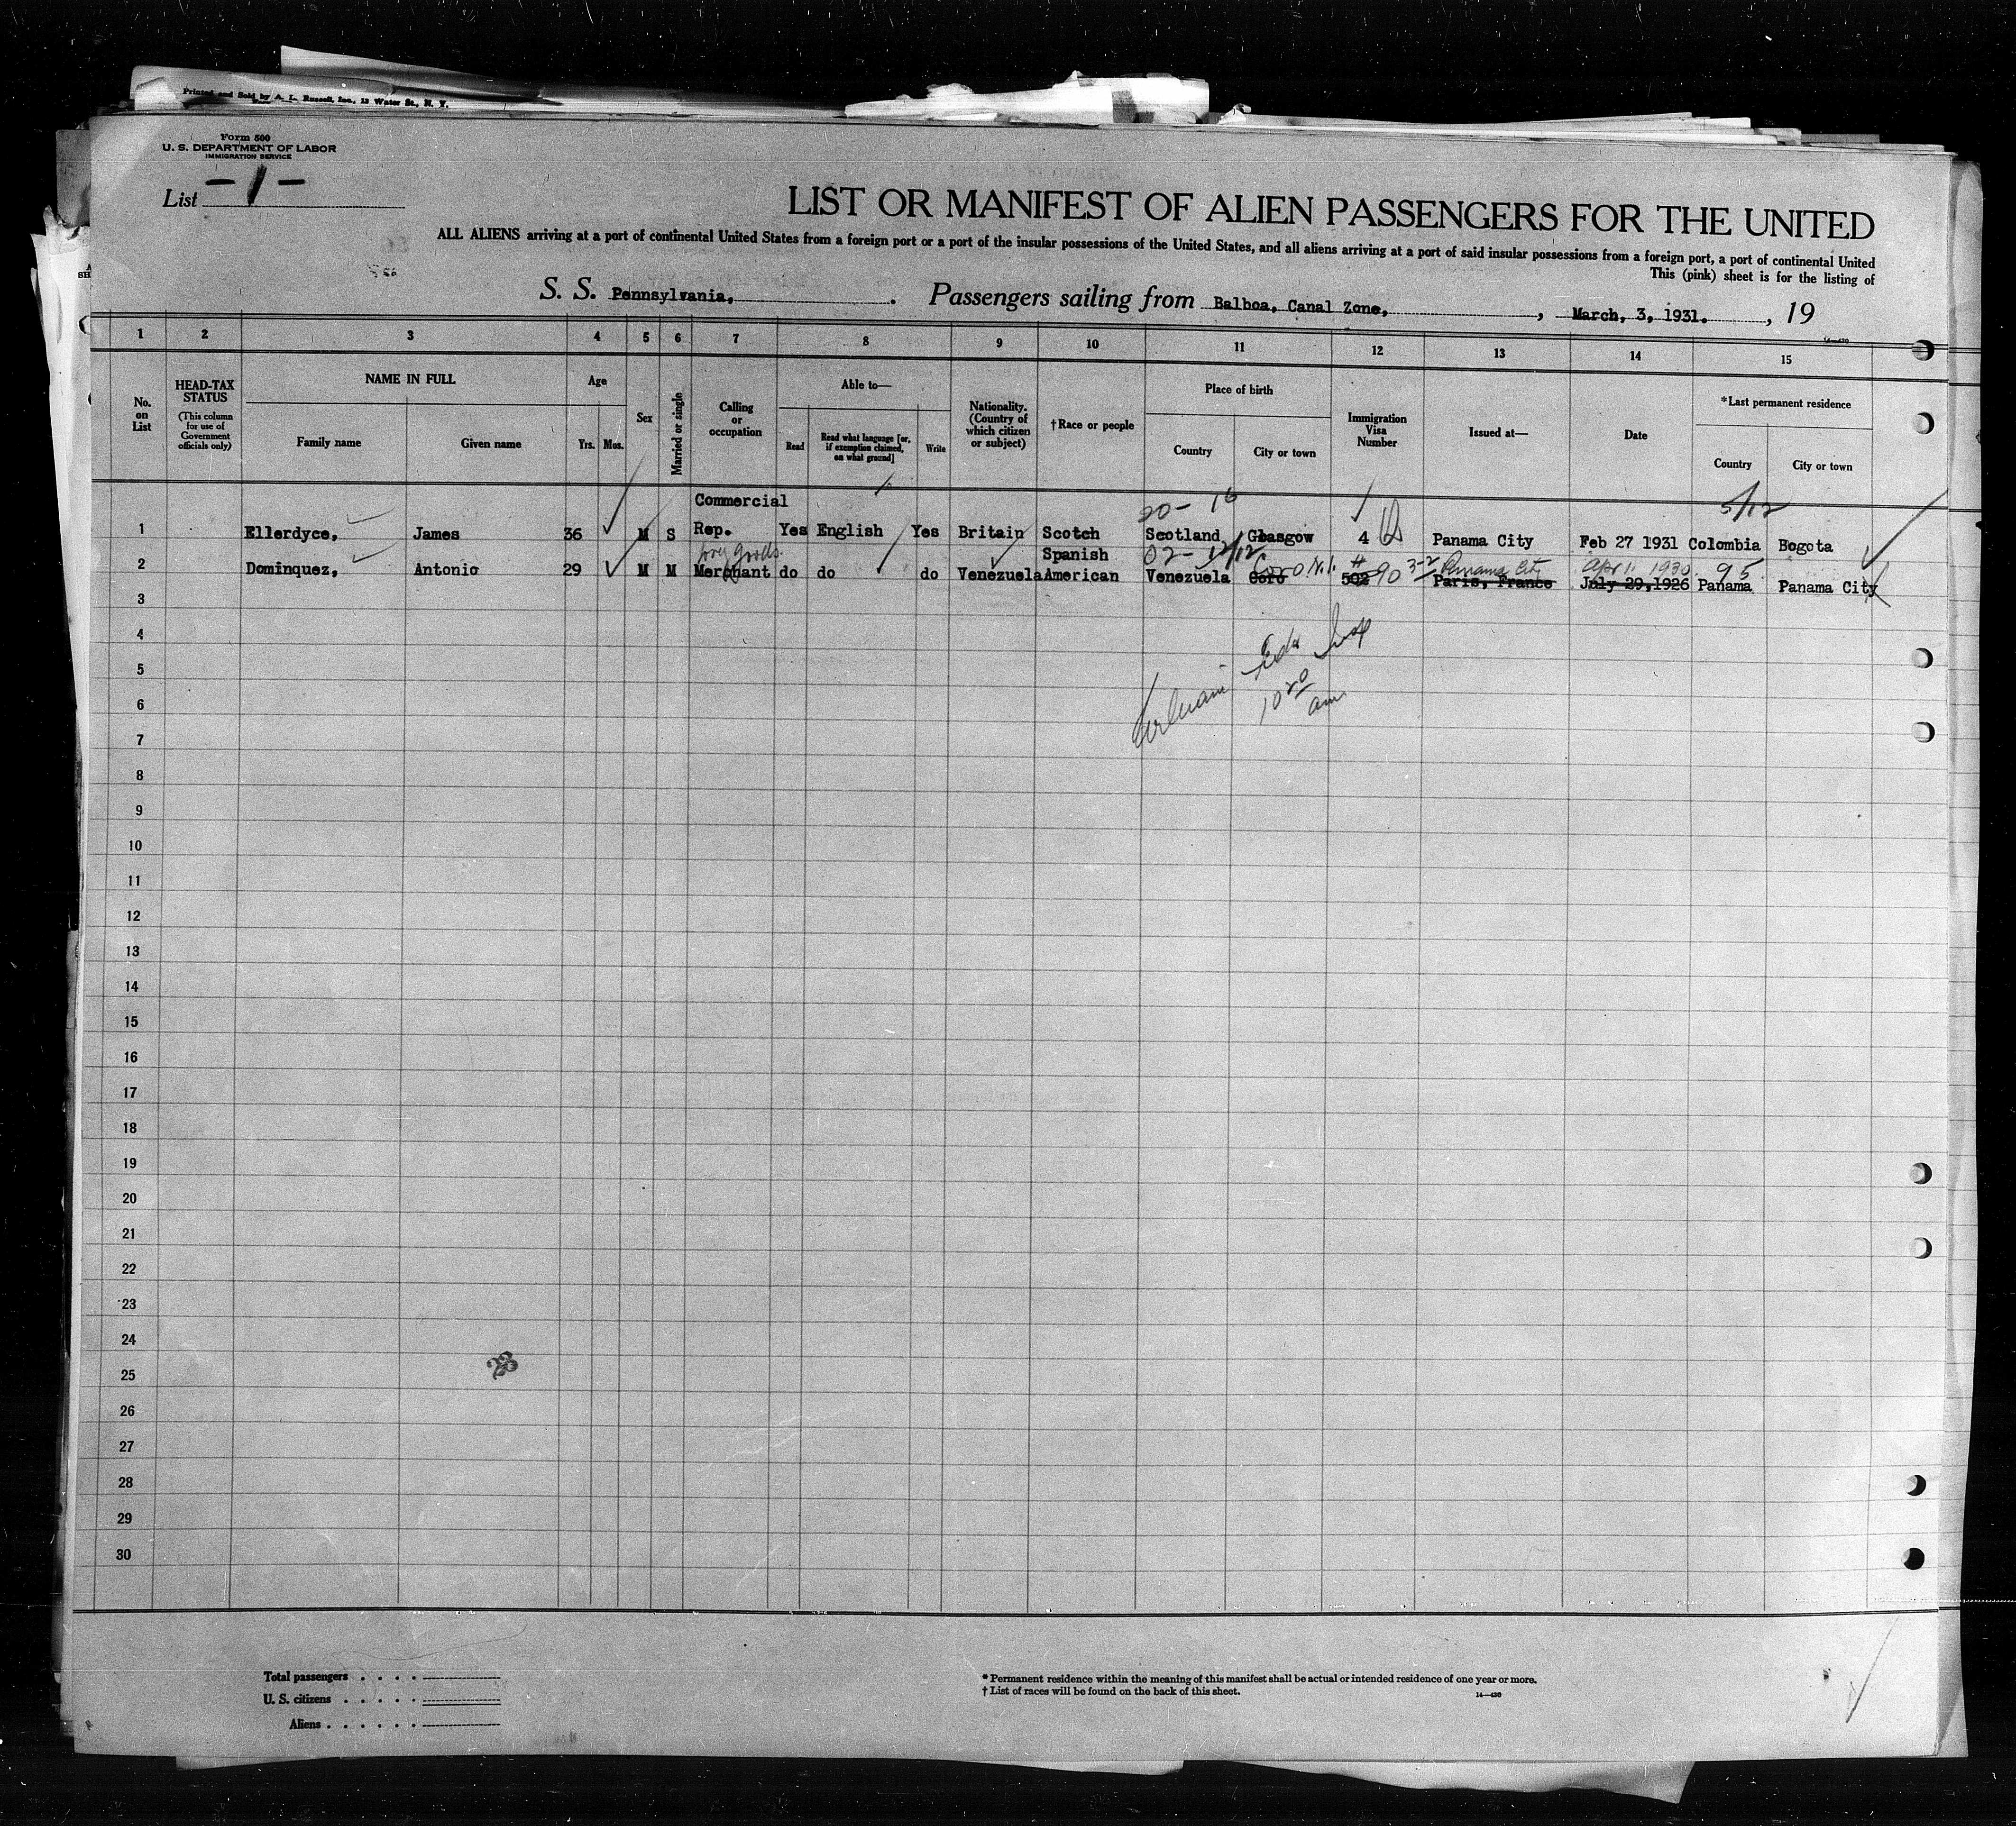 Printed and Sold by A. L. Russell, Inc., 13 Water St., N. Y.
Form 500
U. S. DEPARTMENT OF LABOR
IMMIGRATION SERVICE
List - 1 -
LIST OR MANIFEST OF ALIEN PASSENGERS FOR THE UNITED
ALL ALIENS arriving at a port of continental United States from a foreign port or a port of the insular possessions of the United States, and all aliens arriving at a port of said insular possessions from a foreign port, a port of continental United
This (pink) sheet is for the listing of
S. S. Pennsylvania, . Passengers sailing from Balboa, Canal Zone, , March, 3, 1931. , 19
14—430
1 2 3 4 5 6 7 8 9 10 11 12 13 14 15
No. on List
HEAD-TAX STATUS
(This column for use of Government officials only)
NAME IN FULL
Family name
Given name
Age
Yrs.
Mos.
Sex
Married or single
Calling or occupation
Able to—
Read
Read what language [or, if exemption claimed, on what ground]
Write
Nationality. (Country of which citizen or subject)
†Race or people
Place of birth
Country
City or town
Immigration Visa Number
Issued at—
Date
*Last permanent residence
Country
City or town
Commercial
20- 16
5/12
1 Ellerdyce, James 36 M S Rep. Yes English Yes Britain Scotch Scotland Glasgow 4 Panama City Feb 27 1931 Colombia Bogota
Spanish
02- 12/12 Coro 3-2 Panama City Apr 11 1930 95
2 Dominquez, Antonio 29 M M Merchant do do do Venezuela American Venezuela Coro 502 90 Paris, France July 29,1926 Panama Panama City
3
4
5
6
10 20 am
7
8
9
10
11
12
13
14
15
16
17
18
19
20
21
22
23
24
25
26
27
28
29
30
Total passengers . . . .
U. S. citizens . . . . .
Aliens . . . . . .
* Permanent residence within the meaning of this manifest shall be actual or intended residence of one year or more.
† List of races will be found on the back of this sheet.
14—430